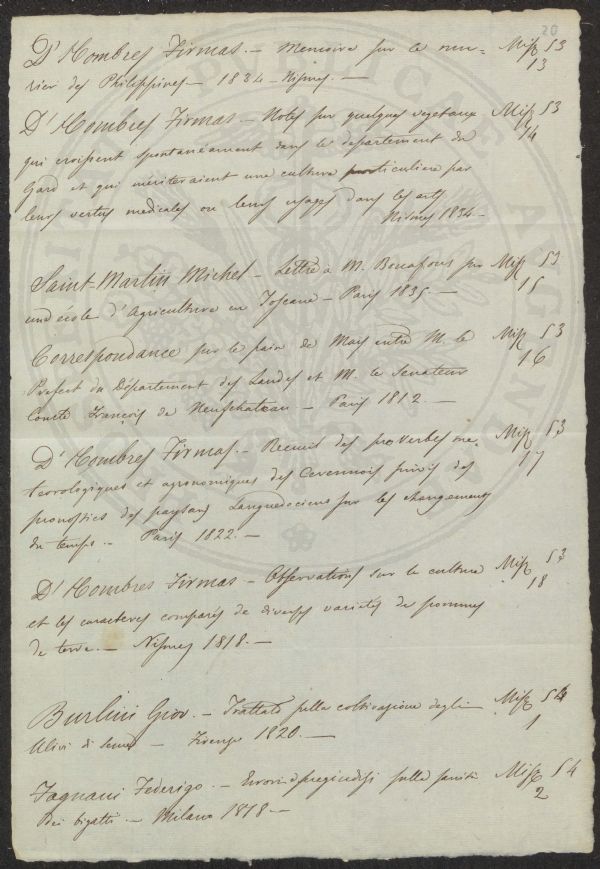 20
D'Hombres Firmas. — Memoire sur le meu- Misc 53
rier des Philippines — 1834 — Nismes. — 13
D'Hombres Firmas — Notes sur quelques vegetaux Misc 53
qui croissent spontanéament dans le departement du 14
Gard et qui mériteraient une culture particuliere par
leurs vertus medicales ou leurs usages dans les arts
Nismes 1834 —
Saint-Martin Michel — Lettre à M. Bonafous sur Misc 53
une école d'Agriculture en Toscane — Paris 1835 — 15
Correspondance sur le pain de Mais entre M. le Misc 53
Prefect du Département des Landes et M. le Senateur 16
Comte François de Neufchateau — Paris 1812 —
D'Hombres Firmas — Recueil des proverbes me- Misc 53
teorologiques et agronomiques des Cevennois suivis des 17
pronostics des paysans Languedociens sur les changements
du temps. — Paris 1822. —
D'Hombres Firmas — Observations sur la culture Misc 53
et les caracteres comparés de diverses varietés de pommes 18
de terre. — Nismes 1818. —
Burlini Giov. — Trattato sulla coltivazione degli Misc 54
Ulivi di — Firenze 1820. — 1
Fagnani Federigo. — Errori e pregiudizi sulla Misc 54
dei bigatti. — Milano 1818 — 2